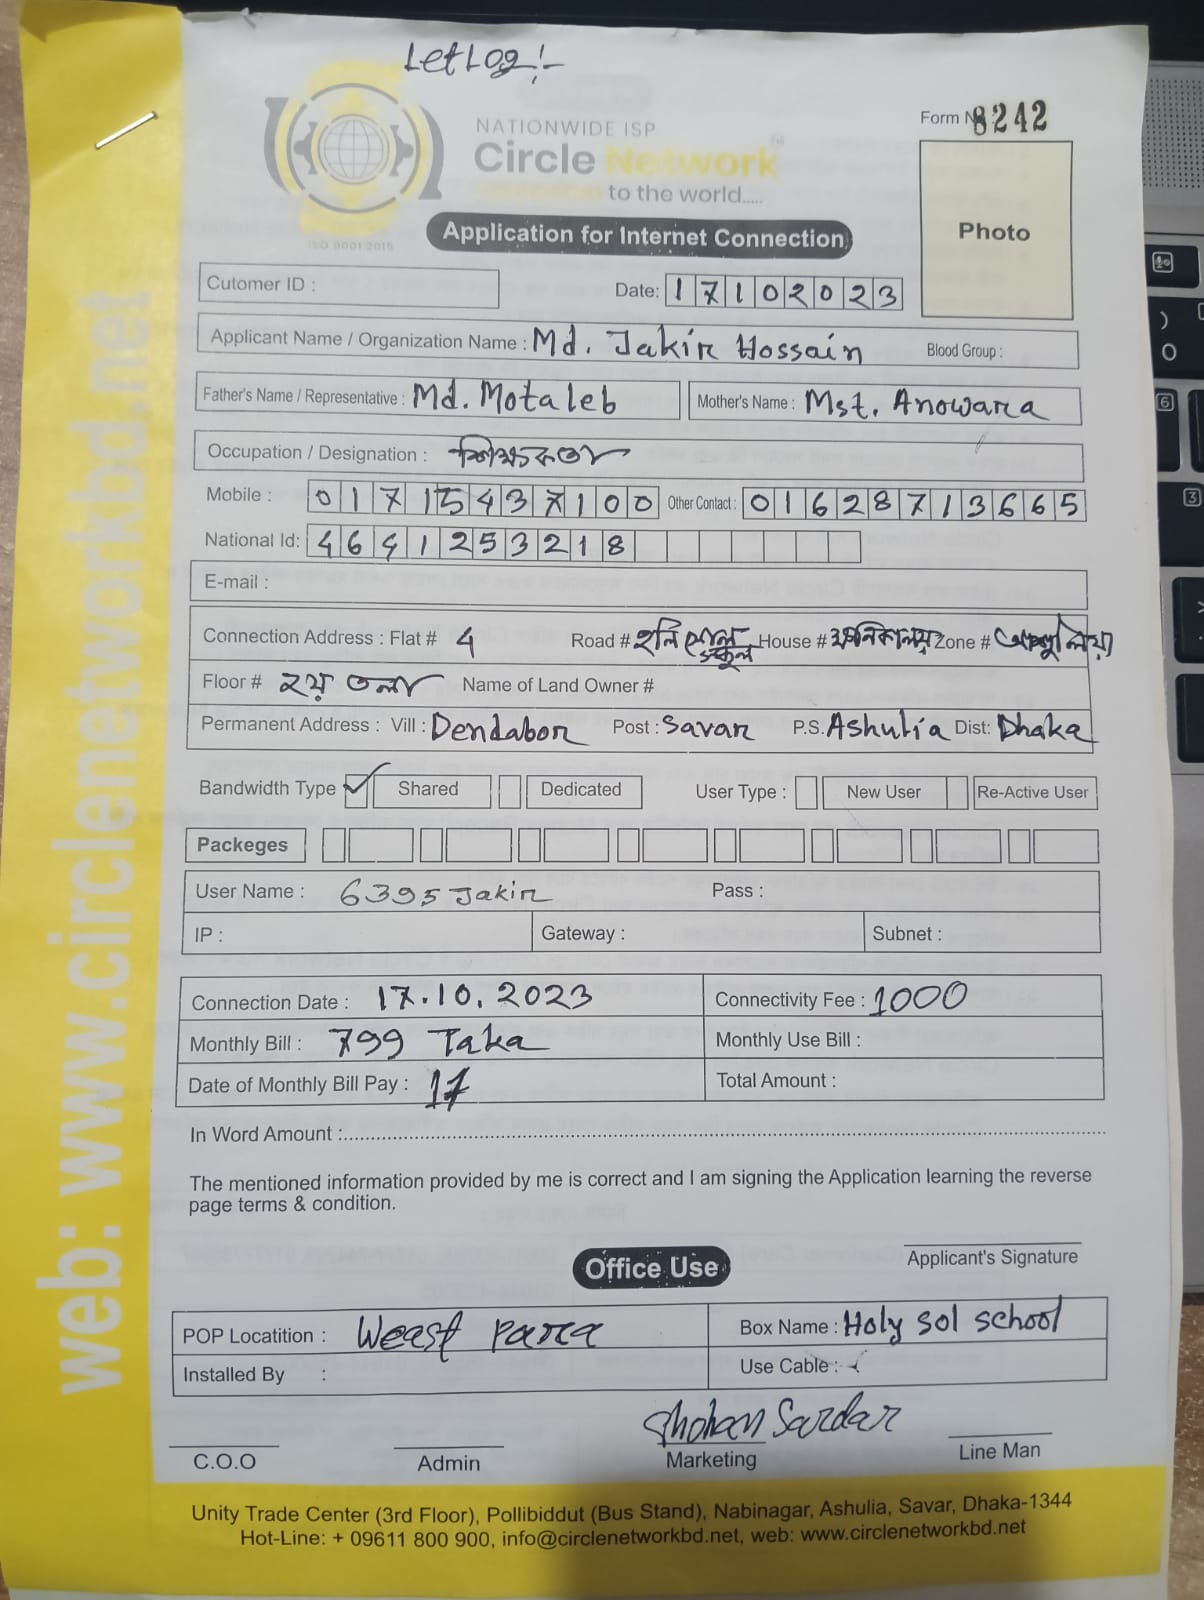 LetLog!-
NATIONWIDE ISP
Circle Network
to the world.....
ISO 9001:2015
Form No 8242
Photo
Application for Internet Connection
Cutomer ID :
Date: 17102023
Applicant Name / Organization Name : Md. Jakir Hossain Blood Group :
Father's Name / Representative : Md. Motaleb Mother's Name : Mst. Anowara
Occupation / Designation : শিক্ষকতা
Mobile : 01715437100 Other Contact : 01628713665
National Id: 4641253218
E-mail :
Connection Address : Flat # 4 Road # হলি সোল স্কুল House # Zone # আশুলিয়া
Floor # ২য় তলা Name of Land Owner #
Permanent Address : Vill : Dendabor Post : Savar P.S. Ashulia Dist: Dhaka
Bandwidth Type Shared Dedicated User Type : New User Re-Active User
Packeges
User Name : 6395 Jakir Pass :
IP : Gateway : Subnet :
Connection Date : 17.10.2023 Connectivity Fee : 1000
Monthly Bill : 799 Taka Monthly Use Bill :
Date of Monthly Bill Pay : 17 Total Amount :
In Word Amount :
The mentioned information provided by me is correct and I am signing the Application learning the reverse
page terms & condition.
Applicant's Signature
Office Use
POP Locatition : Weast Parra Box Name : Holy sol school
Installed By : Use Cable :
Shohan Sardar
C.O.O Admin Marketing Line Man
Unity Trade Center (3rd Floor), Pollibiddut (Bus Stand), Nabinagar, Ashulia, Savar, Dhaka-1344
Hot-Line: + 09611 800 900, info@circlenetworkbd.net, web: www.circlenetworkbd.net
web: www.circlenetworkbd.net